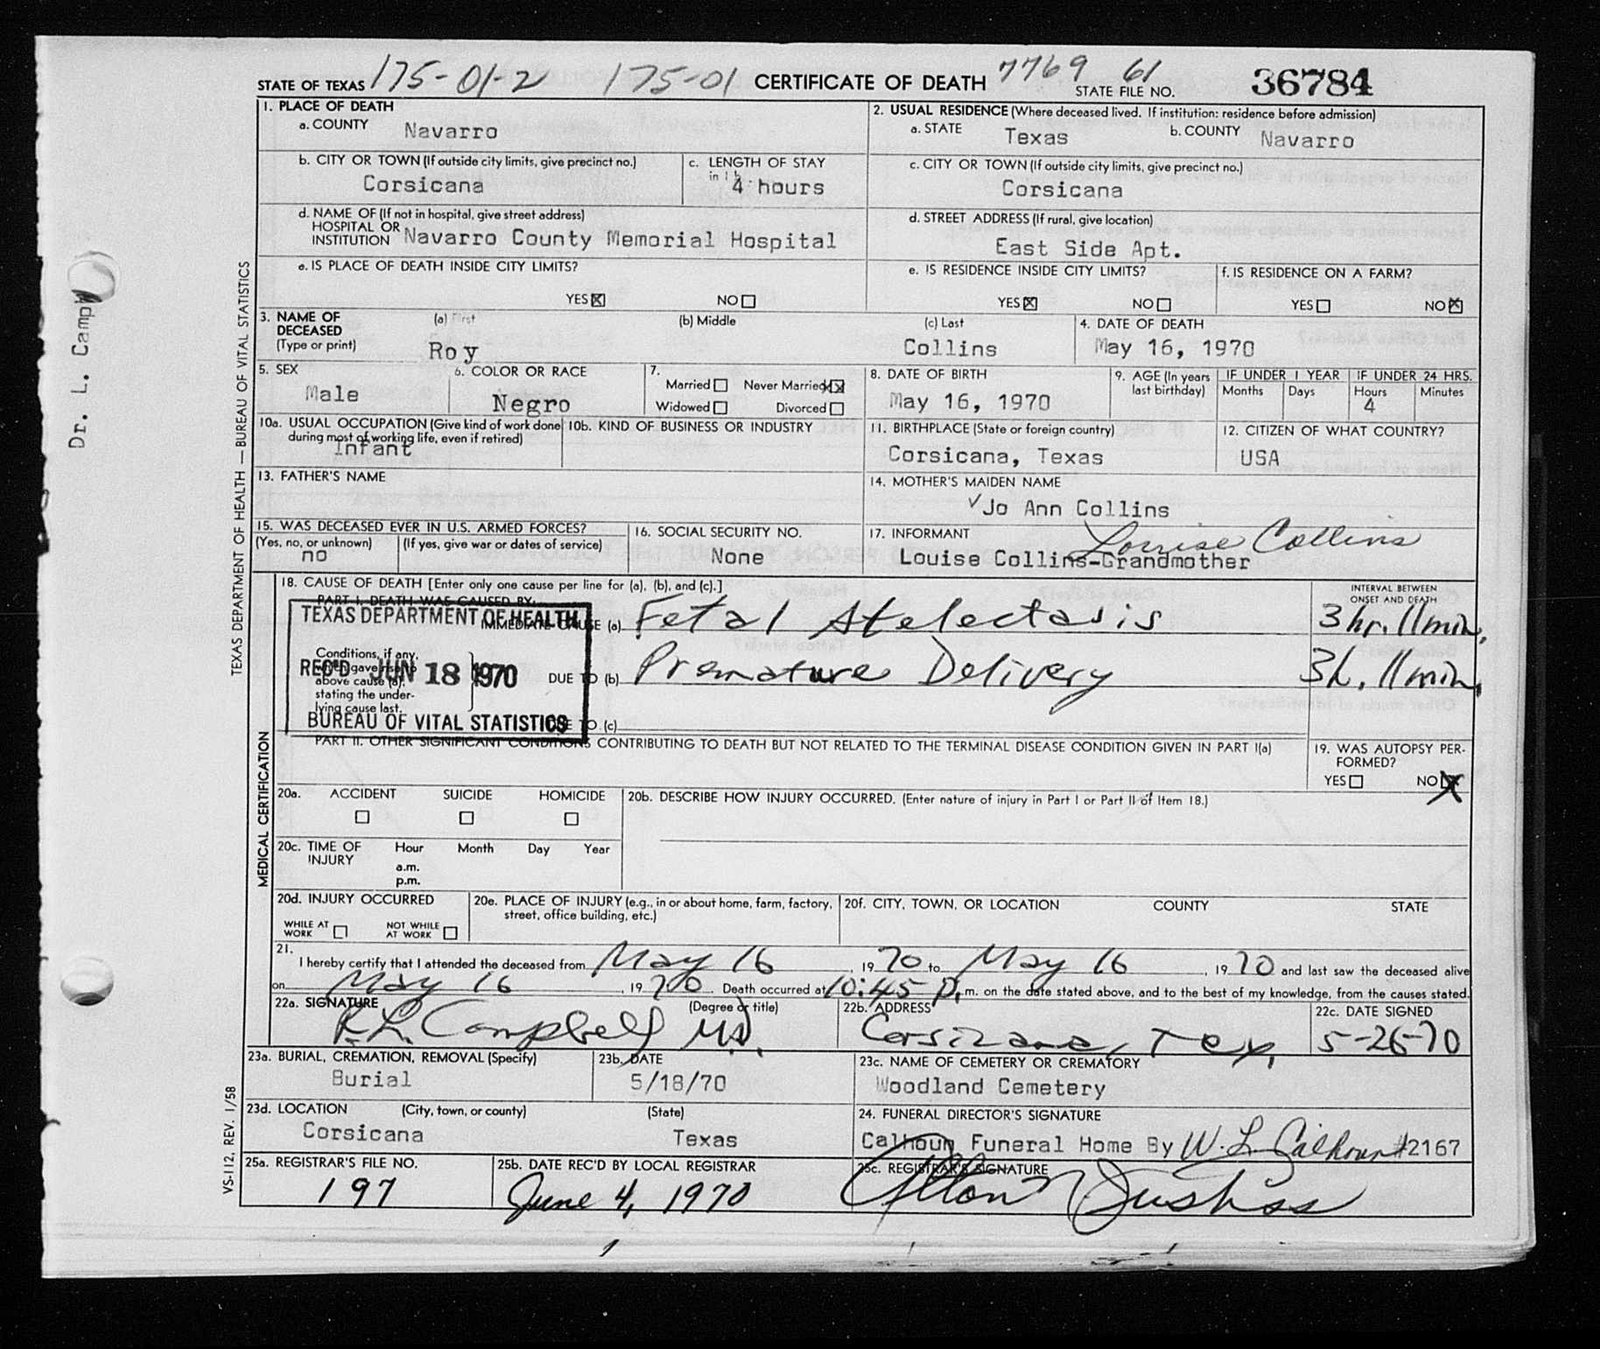 STATE OF TEXAS 175-01-2 175-01 CERTIFICATE OF DEATH 7769 61 STATE FILE NO. 36784
1. PLACE OF DEATH
a. COUNTY Navarro
2. USUAL RESIDENCE (Where deceased lived. If institution: residence before admission)
a. STATE Texas b. COUNTY Navarro
b. CITY OR TOWN (If outside city limits, give precinct no.)
Corsicana
c. LENGTH OF STAY
in 1 b.
4 hours
c. CITY OR TOWN (If outside city limits, give precinct no.)
Corsicana
d. NAME OF (If not in hospital, give street address)
HOSPITAL OR
INSTITUTION Navarro County Memorial Hospital
d. STREET ADDRESS (If rural, give location)
East Side Apt.
e. IS PLACE OF DEATH INSIDE CITY LIMITS?
YES NO
e. IS RESIDENCE INSIDE CITY LIMITS?
YES NO
f. IS RESIDENCE ON A FARM?
YES NO
3. NAME OF
DECEASED
(Type or print)
(a) First
Roy
(b) Middle
(c) Last
Collins
4. DATE OF DEATH
May 16, 1970
5. SEX
Male
6. COLOR OR RACE
Negro
7.
Married Never Married
Widowed Divorced
8. DATE OF BIRTH
May 16, 1970
9. AGE (In years
last birthday)
IF UNDER 1 YEAR
Months Days
IF UNDER 24 HRS.
Hours Minutes
4
10a. USUAL OCCUPATION (Give kind of work done
during most of working life, even if retired)
Infant
10b. KIND OF BUSINESS OR INDUSTRY
11. BIRTHPLACE (State or foreign country)
Corsicana, Texas
12. CITIZEN OF WHAT COUNTRY?
USA
13. FATHER'S NAME
14. MOTHER'S MAIDEN NAME
Jo Ann Collins
15. WAS DECEASED EVER IN U.S. ARMED FORCES?
(Yes, no, or unknown) (If yes, give war or dates of service)
no
16. SOCIAL SECURITY NO.
None
17. INFORMANT
Louise Collins
Louise Collins-Grandmother
18. CAUSE OF DEATH [Enter only one cause per line for (a), (b), and (c).]
PART I. DEATH WAS CAUSED BY:
IMMEDIATE CAUSE (a) Fetal Atelectasis
INTERVAL BETWEEN
ONSET AND DEATH
3 hr. 11 min.
TEXAS DEPARTMENT OF HEALTH
REC'D JUN 18 1970
BUREAU OF VITAL STATISTICS
Conditions, if any,
which gave rise to
above cause (a),
stating the under-
lying cause last.
DUE TO (b) Premature Delivery 3h. 11 min.
DUE TO (c)
PART II. OTHER SIGNIFICANT CONDITIONS CONTRIBUTING TO DEATH BUT NOT RELATED TO THE TERMINAL DISEASE CONDITION GIVEN IN PART I(a)
19. WAS AUTOPSY PER-
FORMED?
YES NO
20a. ACCIDENT SUICIDE HOMICIDE
20b. DESCRIBE HOW INJURY OCCURRED. (Enter nature of injury in Part I or Part II of Item 18.)
20c. TIME OF
INJURY
Hour Month Day Year
a.m.
p.m.
20d. INJURY OCCURRED
WHILE AT
WORK
NOT WHILE
AT WORK
20e. PLACE OF INJURY (e.g., in or about home, farm, factory,
street, office building, etc.)
20f. CITY, TOWN, OR LOCATION COUNTY STATE
21.
I hereby certify that I attended the deceased from May 16, 1970 to May 16, 1970 and last saw the deceased alive
on May 16, 1970. Death occurred at 10:45 P.m. on the date stated above, and to the best of my knowledge, from the causes stated.
22a. SIGNATURE (Degree or title)
R.L. Campbell M.D.
22b. ADDRESS
Corsicana, Tex.
22c. DATE SIGNED
5-26-70
23a. BURIAL, CREMATION, REMOVAL (Specify)
Burial
23b. DATE
5/18/70
23c. NAME OF CEMETERY OR CREMATORY
Woodland Cemetery
23d. LOCATION (City, town, or county) (State)
Corsicana Texas
24. FUNERAL DIRECTOR'S SIGNATURE
Calhoun Funeral Home By W. L. Calhoun #2167
25a. REGISTRAR'S FILE NO.
197
25b. DATE REC'D BY LOCAL REGISTRAR
June 4, 1970
25c. REGISTRAR'S SIGNATURE
TEXAS DEPARTMENT OF HEALTH — BUREAU OF VITAL STATISTICS
MEDICAL CERTIFICATION
VS-112, REV. 1/58
Dr. L. Camp